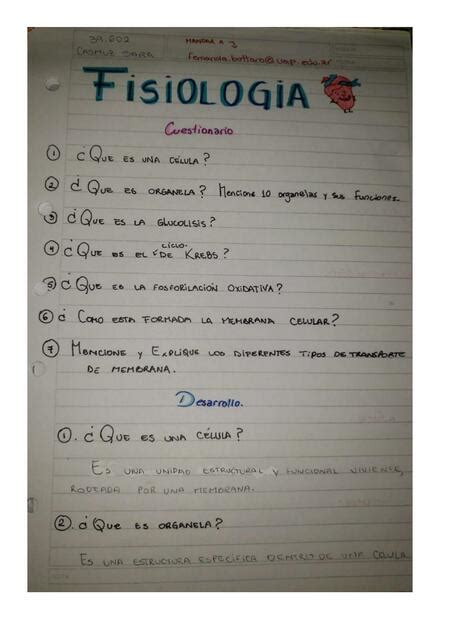 39.802
MANDAR A 3
CASMUZ SARA
fernanda.bottaro@uap.edu.ar
FISIOLOGIA
Cuestionario
① ¿QUE ES UNA CÉLULA?
② ¿QUE ES ORGANELA? Mencione 10 organelas y sus funciones.
③ ¿QUE ES LA GLUCOLISIS?
④ ¿QUE ES EL CICLO DE KREBS?
⑤ ¿QUE ES LA FOSFORILACIÓN OXIDATIVA?
⑥ ¿COMO ESTA FORMADA LA MEMBRANA CELULAR?
⑦ MENCIONE Y EXPLIQUE LOS DIFERENTES TIPOS DE TRANSPORTE
DE MEMBRANA.
Desarrollo.
①. ¿QUE ES UNA CÉLULA?
ES UNA UNIDAD ESTRUCTURAL Y FUNCIONAL VIVIENTE,
RODEADA POR UNA MEMBRANA.
②. ¿QUE ES ORGANELA?
ES UNA ESTRUCTURA ESPECÍFICA DENTRO DE UNA CELULA